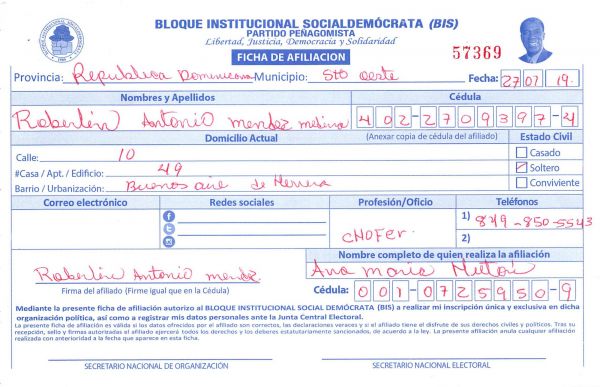 BLOQUE INSTITUCIONAL SOCIALDEMÓCRATA (BIS)
PARTIDO PEÑAGOMISTA
Libertad, Justicia, Democracia y Solidaridad
FICHA DE AFILIACION
57369
Provincia: Republica Dominicana Municipio: Sto Oeste Fecha: 27 07 19
Nombres y Apellidos Cédula
Roberlin Antonio mendez medina 402-2709397-4
Domicilio Actual (Anexar copia de cédula del afiliado) Estado Civil
Calle: 10 Casado
#Casa / Apt. / Edificio: 49 Soltero
Barrio / Urbanización: Buenos aire de Herrera Conviviente
Correo electrónico Redes sociales Profesión/Oficio Teléfonos
CHOFER. 1) 849-850-5543
2)
Nombre completo de quien realiza la afiliación
Roberlin Antonio mendez Ana maria
Firma del afiliado (Firme igual que en la Cédula) Cédula: 001-0725950-9
Mediante la presente ficha de afiliación autorizo al BLOQUE INSTITUCIONAL SOCIAL DEMÓCRATA (BIS) a realizar mi inscripción única y exclusiva en dicha
organización política, así como a registrar mis datos personales ante la Junta Central Electoral.
La presente ficha de afiliación es válida si los datos ofrecidos por el afiliado son correctos, las declaraciones veraces y si el afiliado tiene el disfrute de sus derechos civiles y políticos. Tras su
recepción, sello y firmas autorizadas el afiliado ejercerá todos los derechos y los deberes estatutariamente sancionados, de acuerdo a la ley. La presente afiliación anula cualquier afiliación
realizada con anterioridad a la fecha que aparece en esta ficha.
SECRETARIO NACIONAL DE ORGANIZACIÓN SECRETARIO NACIONAL ELECTORAL